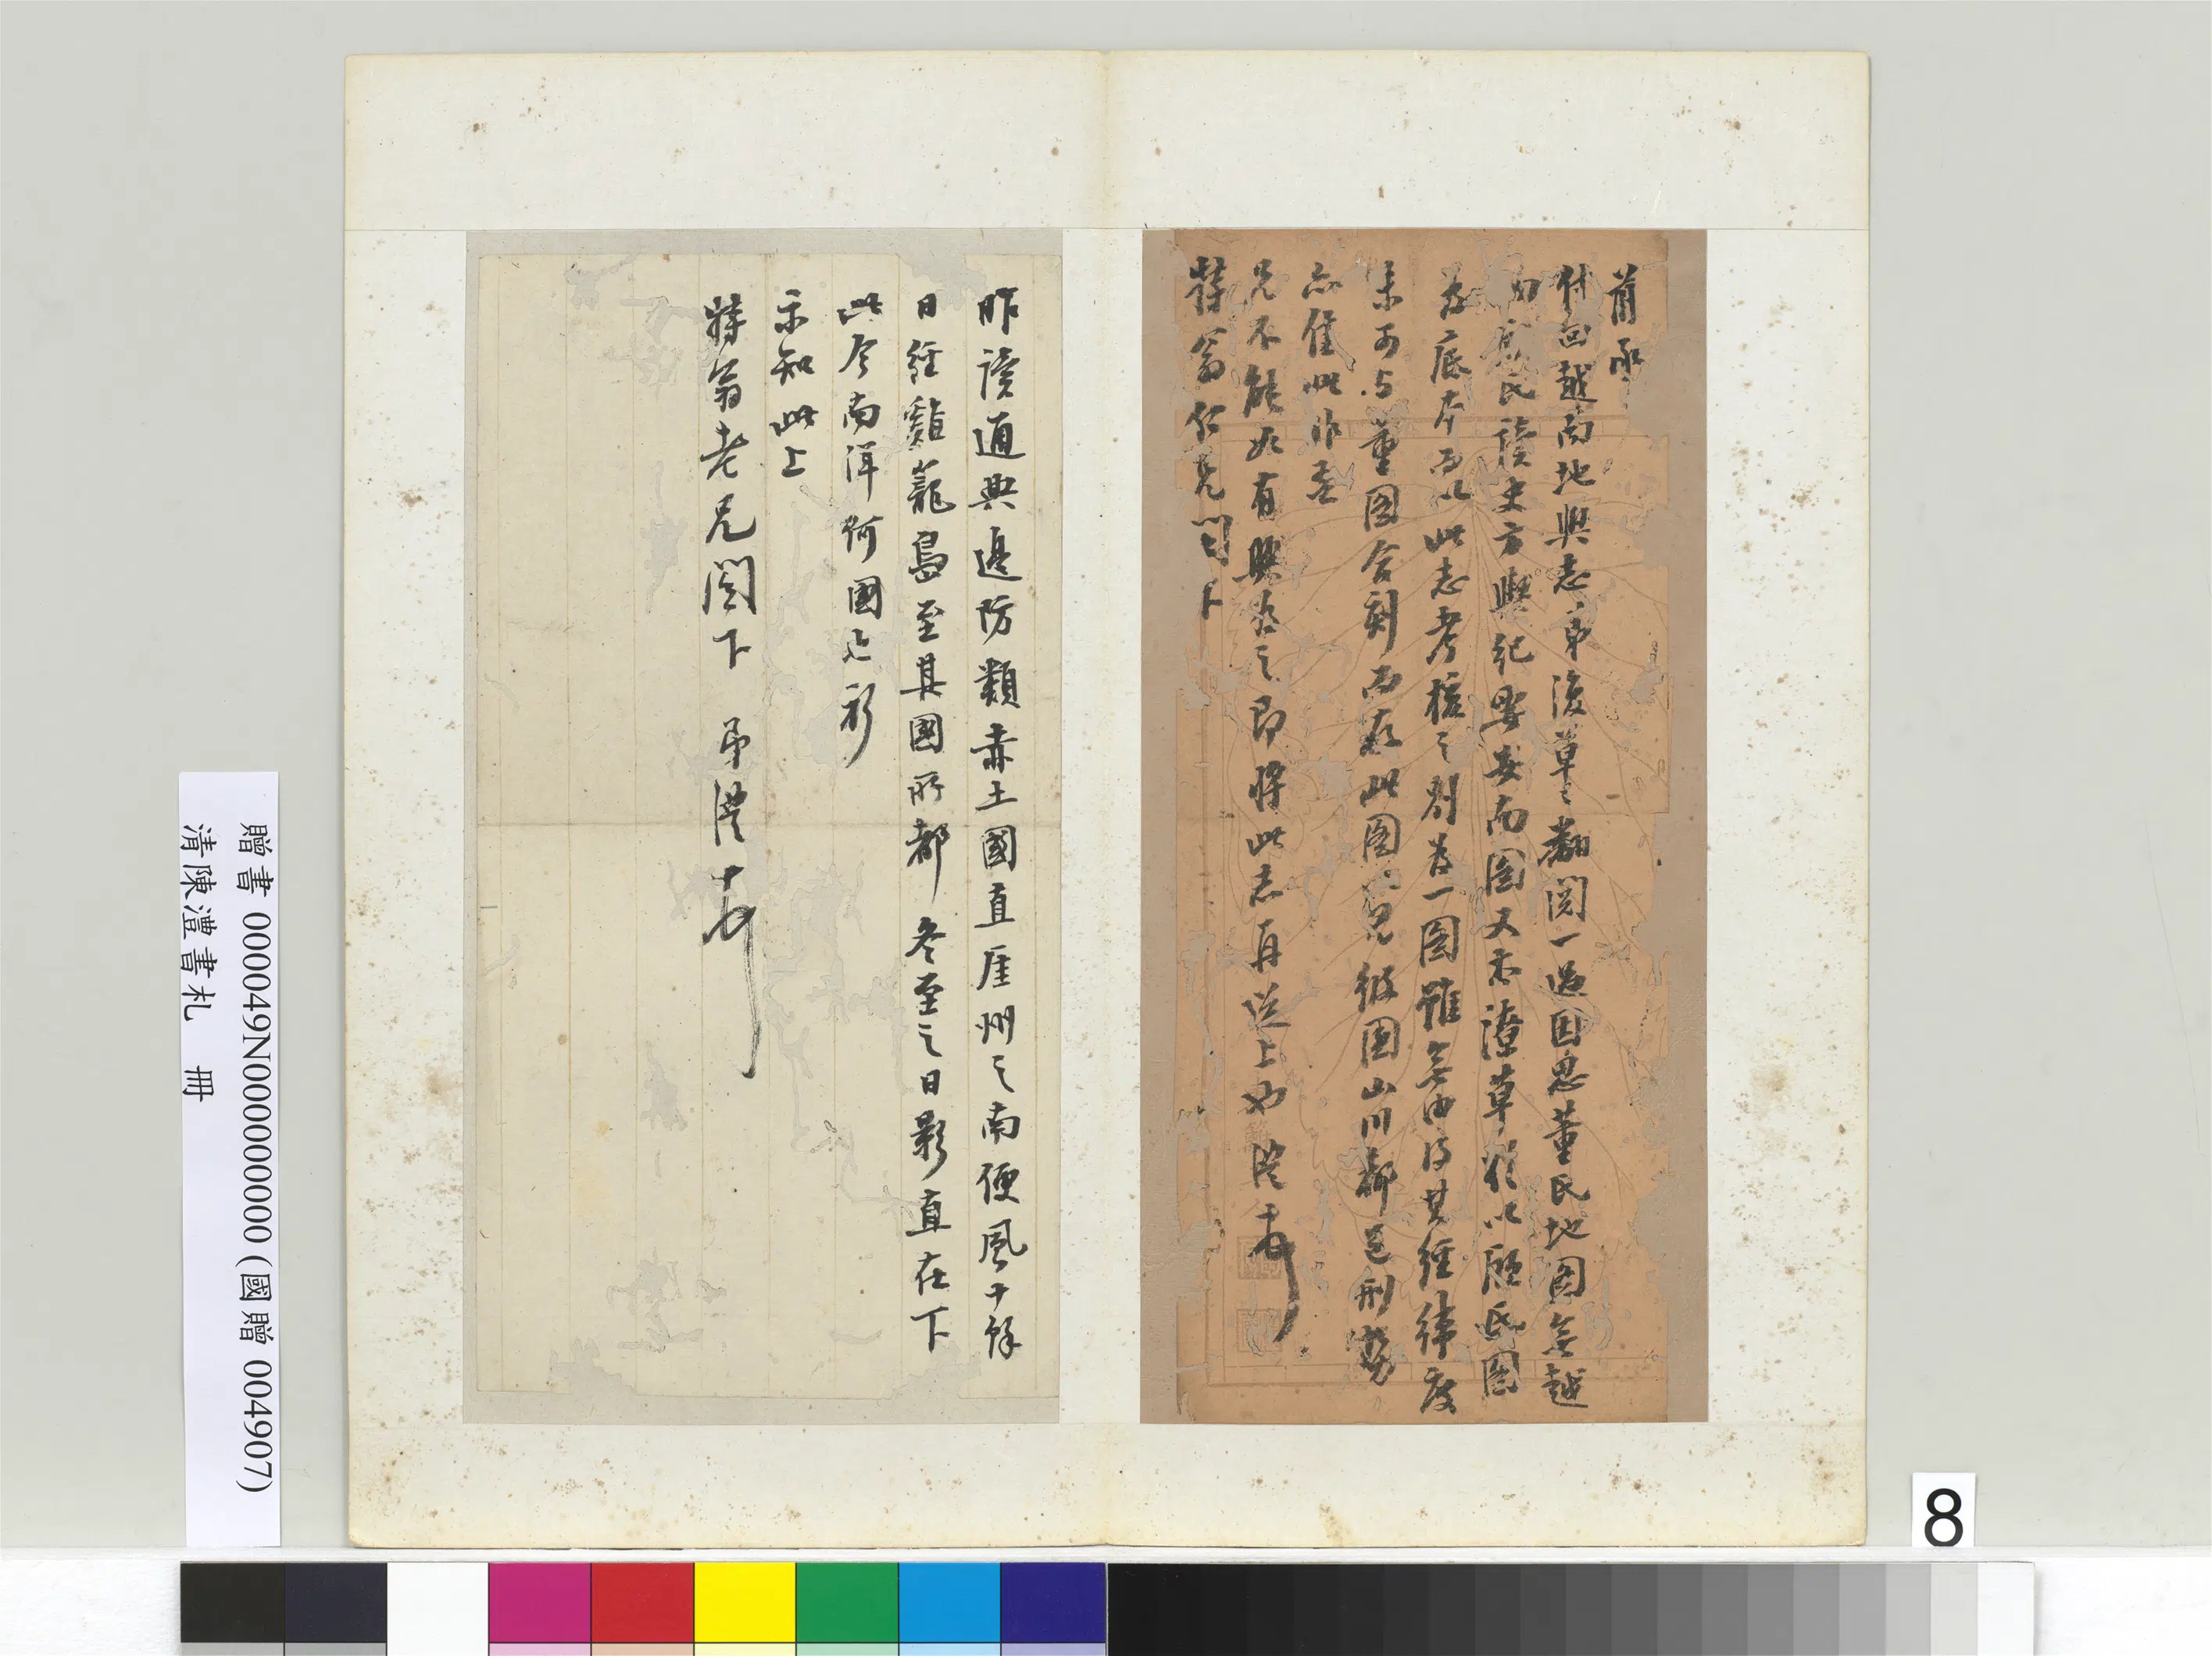 前承
付回越南地輿志弟復草々翻閱一過因思董氏地圖無越
南 氏讀史方輿紀要安南圖又亦潦草擬以顧氏圖
為底本而以此志考核之別為一圖雖無由得其經緯度
未可与董圖合刻而存此圖以見彼國山川都邑形勢
亦佳此非吾
兄不能如有興為之即將此志再送上也澧
特翁仁兄閣下
昨讀通典邊防類赤土國直崖州之南便風十餘
日經雞籠島至其國所都冬至之日影直在下
此今南洋何國也祈
示知此上
特翁老兄閣下 弟澧
贈書 000049N000000000 (國贈 004907)
清陳澧書札 冊
8